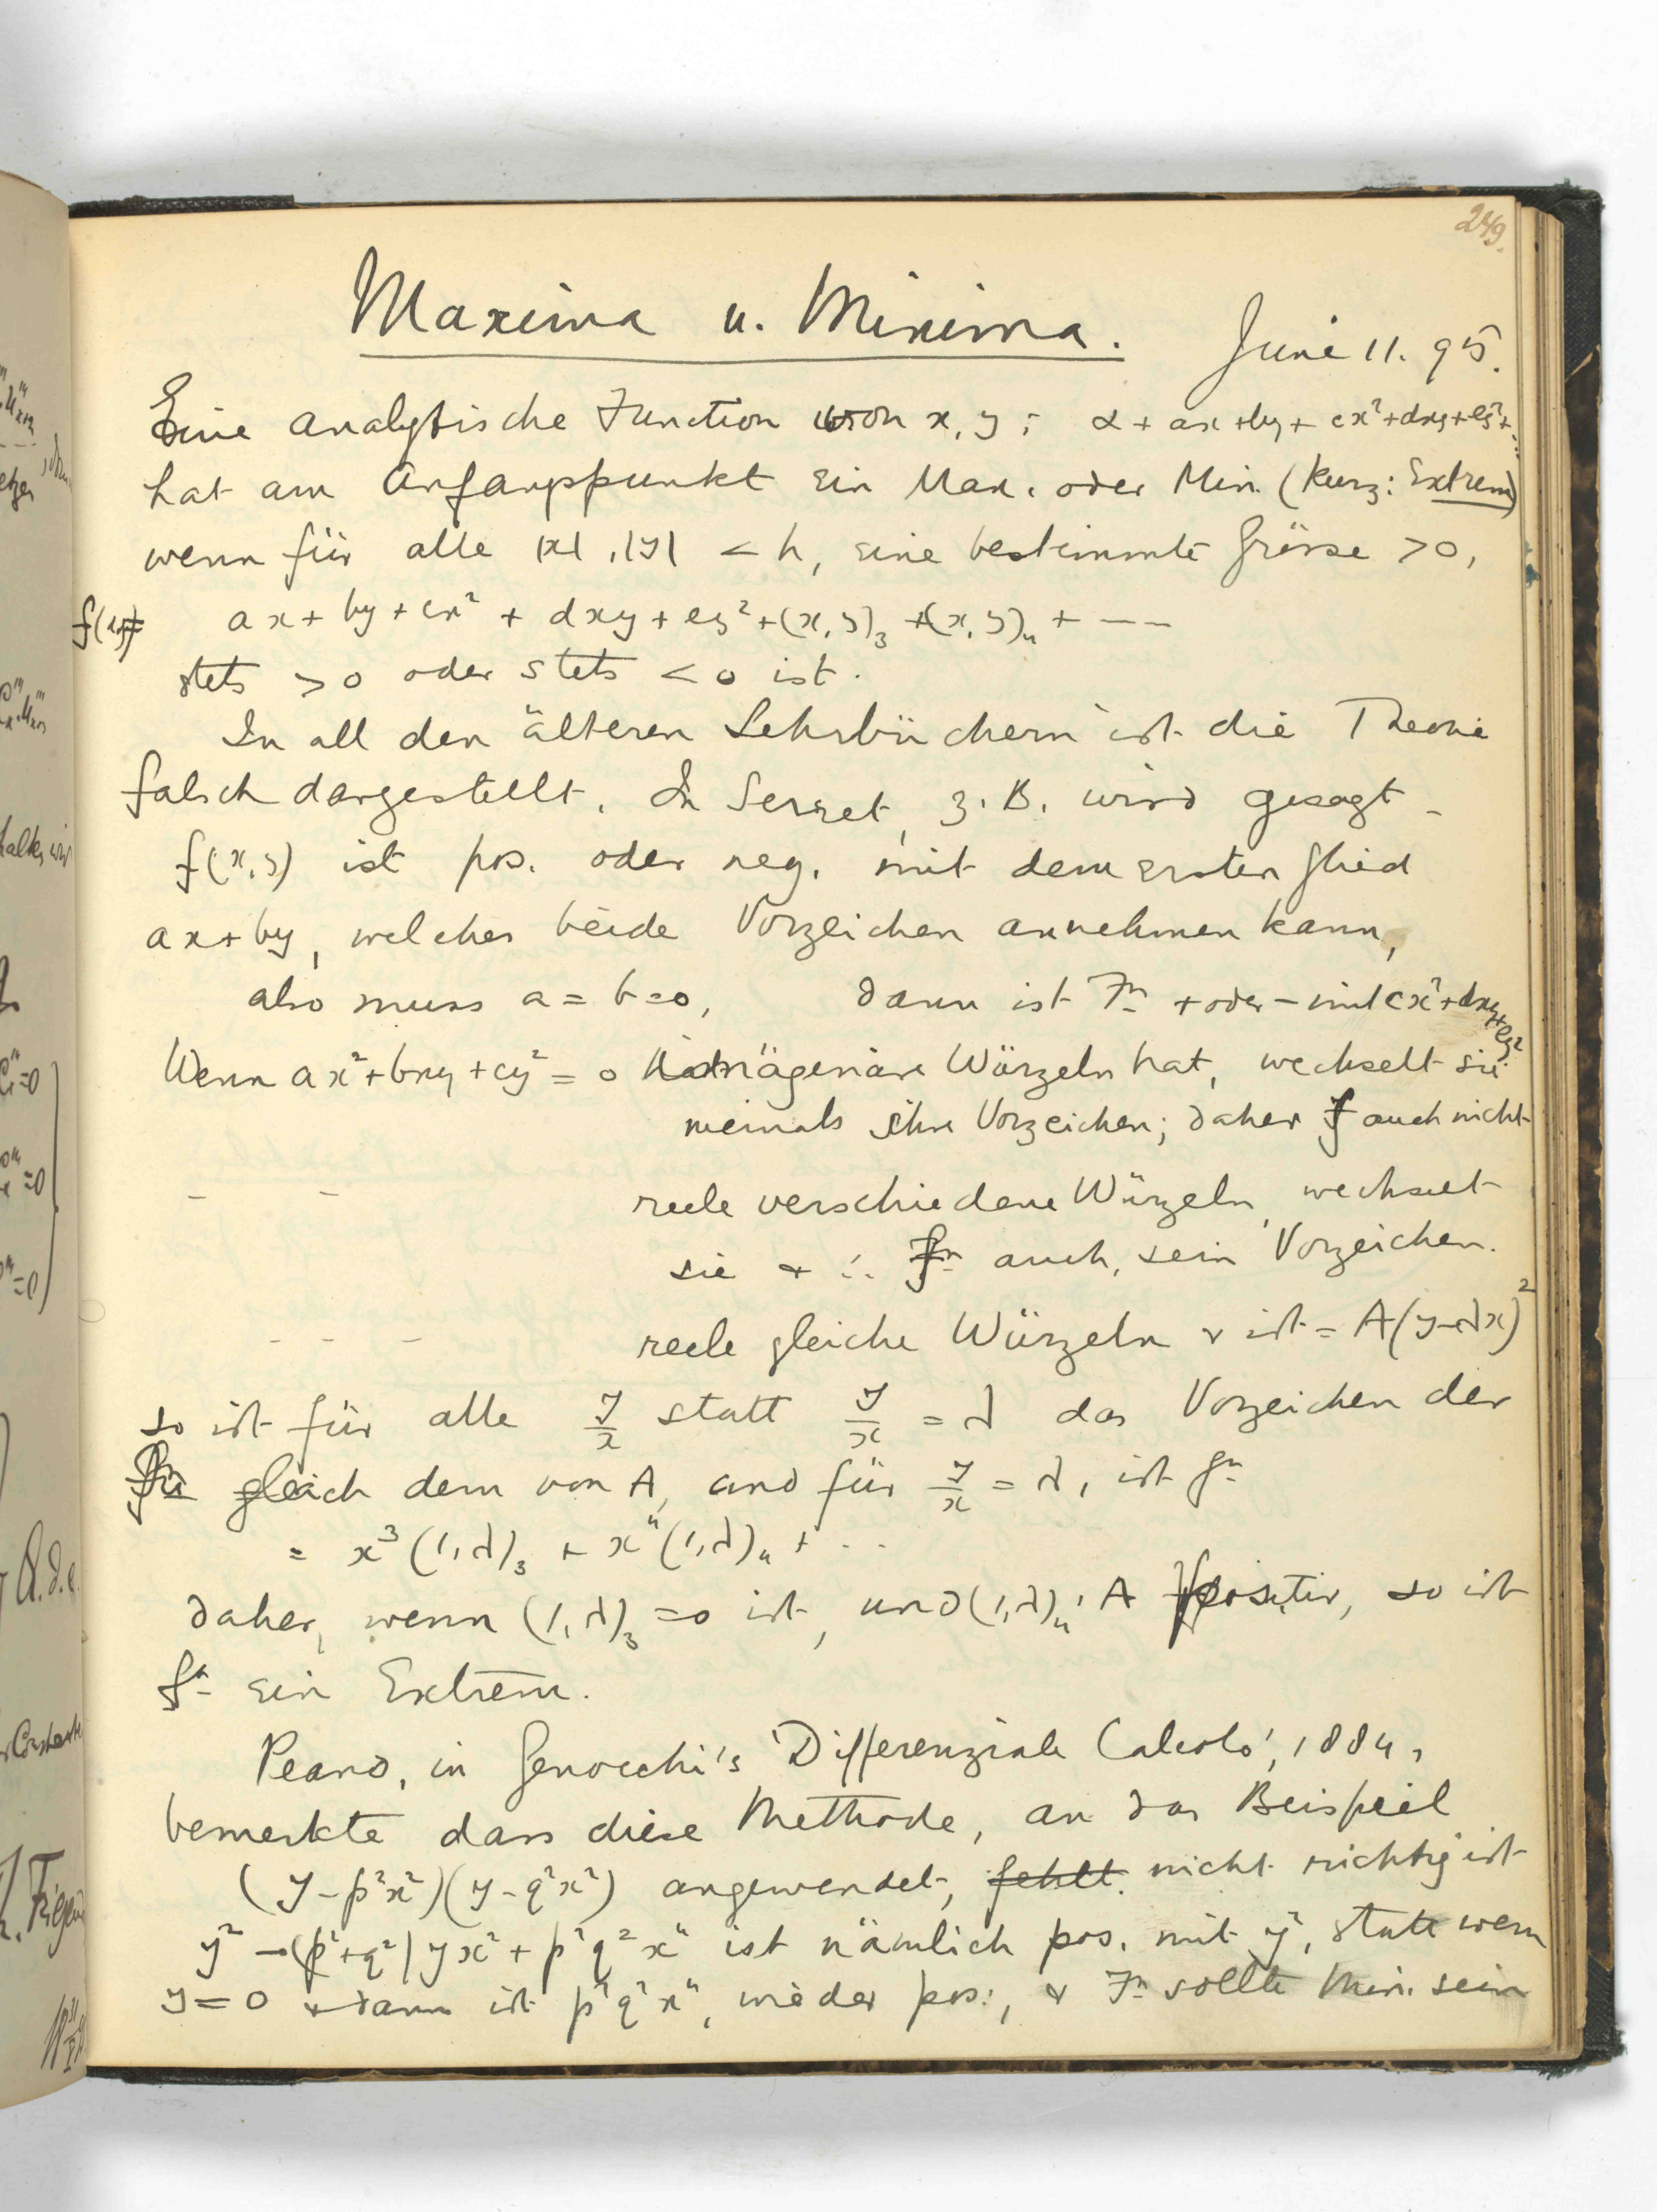 249.
Maxima u. Minima.
Juni 11. 95.
Eine analytische Function von x, y : α + ax + by + cx² + dxy + ey² + ...
hat am Anfangspunkt ein Max. oder Min. (kurz: Extrem)
wenn für alle |x|, |y| < h, eine bestimmte Grösse > 0,
f(x,y)= ax + by + cx² + dxy + ey² + (x, y)₃ + (x, y)₄ + ---
stets > 0 oder stets < 0 ist.
In all den älteren Lehrbüchern ist die Theorie
falsch dargestellt. In Serret, z. B. wird gesagt -
f(x, y) ist pos. oder neg. mit dem ersten Glied
ax + by, welches beide Vorzeichen annehmen kann,
also muss a = b = 0, dann ist Fⁿ + oder - mit cx² + dxy + ey²
Wenn ax² + bxy + cy² = 0 imägenäre Würzeln hat, wechselt sie
niemals ihre Vorzeichen; daher f auch nicht
- - reele verschiedene Würzeln, wechselt
sie & ∴ fⁿ auch, sein Vorzeichen.
- - - reele gleiche Würzeln & ist = A(y-λx)²
so ist für alle y/x statt y/x = λ das Vorzeichen der
fⁿ gleich dem von A, und für y/x = λ, ist fⁿ
= x³(1,λ)₃ + x⁴(1,λ)₄ + ..
daher, wenn (1,λ)₃ = 0 ist, und (1,λ)₄ : A positiv, so ist
fⁿ ein Extrem.
Peano, in Genocchi's 'Differenziale Calcolo', 1884,
bemerkte dass diese Methode, an das Beispiel
(y - p²x²)(y - q²x²) angewendet, fehlt. nicht richtig ist
y² - (p² + q²) yx² + p²q²x⁴ ist nämlich pos. mit y², statt wenn
y = 0 & dann ist p²q²x⁴, wieder pos., & Fⁿ sollte Min. sein